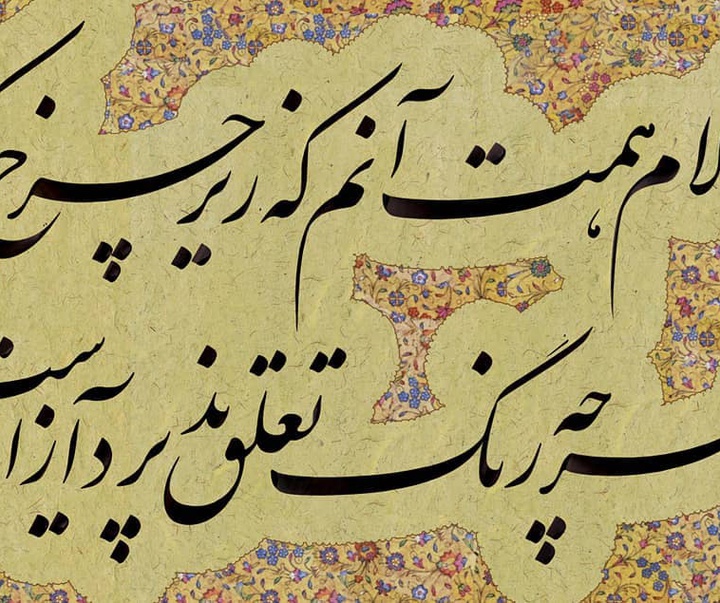 لام همت آنم که زیر چرخ
ر چه رنگ تعلق پذیرد آزا